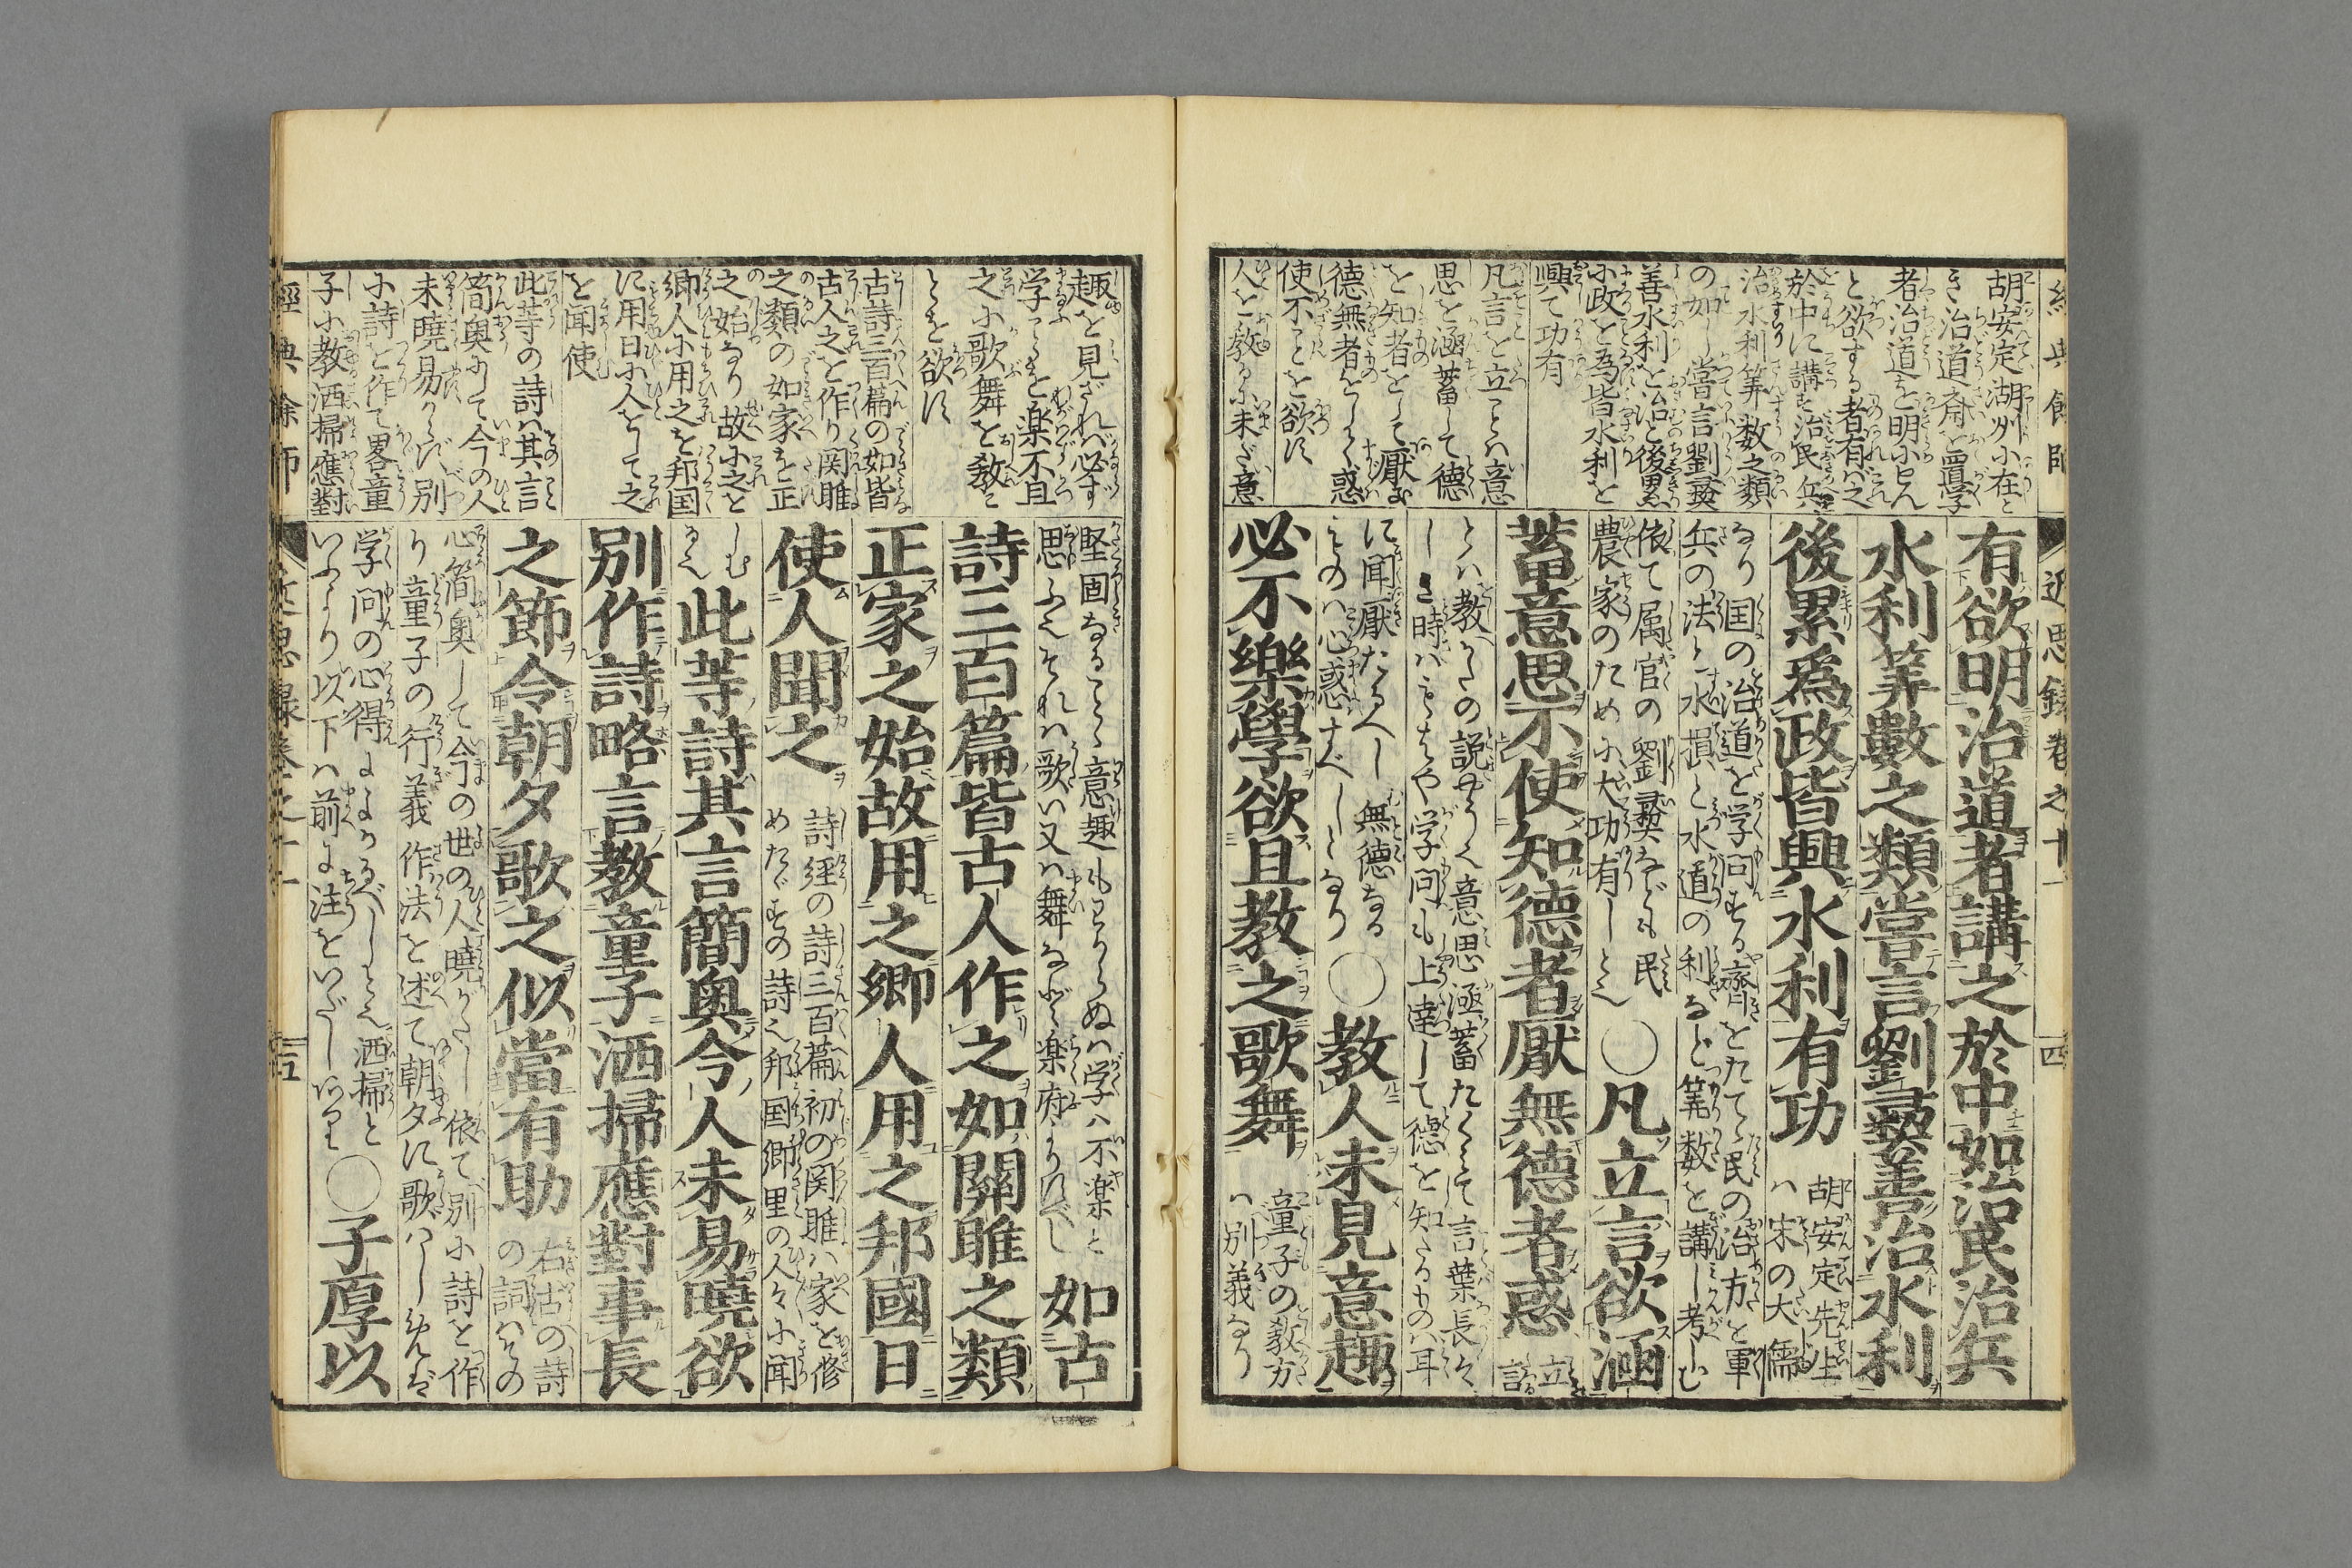 経典餘師
近思録巻之十一
四
胡安定湖州小在と
き治道斎を置学
者治道を明小せん
と欲する者有バ之
於中に講を治民兵
治水利筭数之類
の如し嘗言劉彝
善水利を治と後累
小政を為皆水利を
興て功有
凡言を立ことハ意
思を涵蓄して德
を知者をして厭ま
德無者をして惑
使不ことを欲に
人を教るに未だ意
有欲明治道者講之於中如治民治兵
水利筭數之類嘗言劉彝善治水利
後累爲政皆興水利有功
胡安定先生
ハ宋の大儒
なり国の治道を学問する斎をたてゝ民の治方と軍
兵の法と水損と水道の利など筭数を講し考しむ
依て属官の劉彝なども民
農家のために大功有しとく
○凡立言欲涵
蓄意思不使知德者厭無德者惑
立
言
とハ教かたの説やうく意思涵蓄たくして言葉長々
しき時ハもはや学問も上達して德を知たるものハ耳
に聞厭たるべし無德なる
ものハ心惑すべしとなり
○教人未見意趣
必不樂學欲且教之歌舞
童子の教方
ハ別義なり
趣を見ざれバ必ず
学ことを楽不且
之小歌舞を教こ
とを欲に
古詩三百篇の如皆
古人之を作り関雎
之類の如家を正
之始なり故小之を
郷人小用之を邦国
に用日小人をして之
を聞使
此等の詩ハ其言
簡奥にして今の人
未曉易からず別
小詩を作て畧童
子小教洒掃應對
堅固なること意趣もわからぬハ学ハ不楽と
思ふそれハ歌い又ハ舞など楽府よりすべし
如古
詩三百篇皆古人作之如關雎之類
正家之始故用之郷人用之邦國日
使人聞之
詩経の詩三百篇初の関雎ハ家を修
めたゞすの詩く邦国郷里の人々小聞
しむ
るく
此等詩其言簡奥今人未易曉欲
別作詩略言教童子洒掃應對事長
之節令朝夕歌之似當有助
右古の詩
の詞ハその
心簡奥して今の世の人曉がたし依て別小詩を作
り童子の行義作法を述て朝夕に歌ハしめバ
学問の心得によかるべしとく洒掃と
いふより以下ハ前に注をいだしあり
○子厚以
經典餘師
近思録巻之十一
五